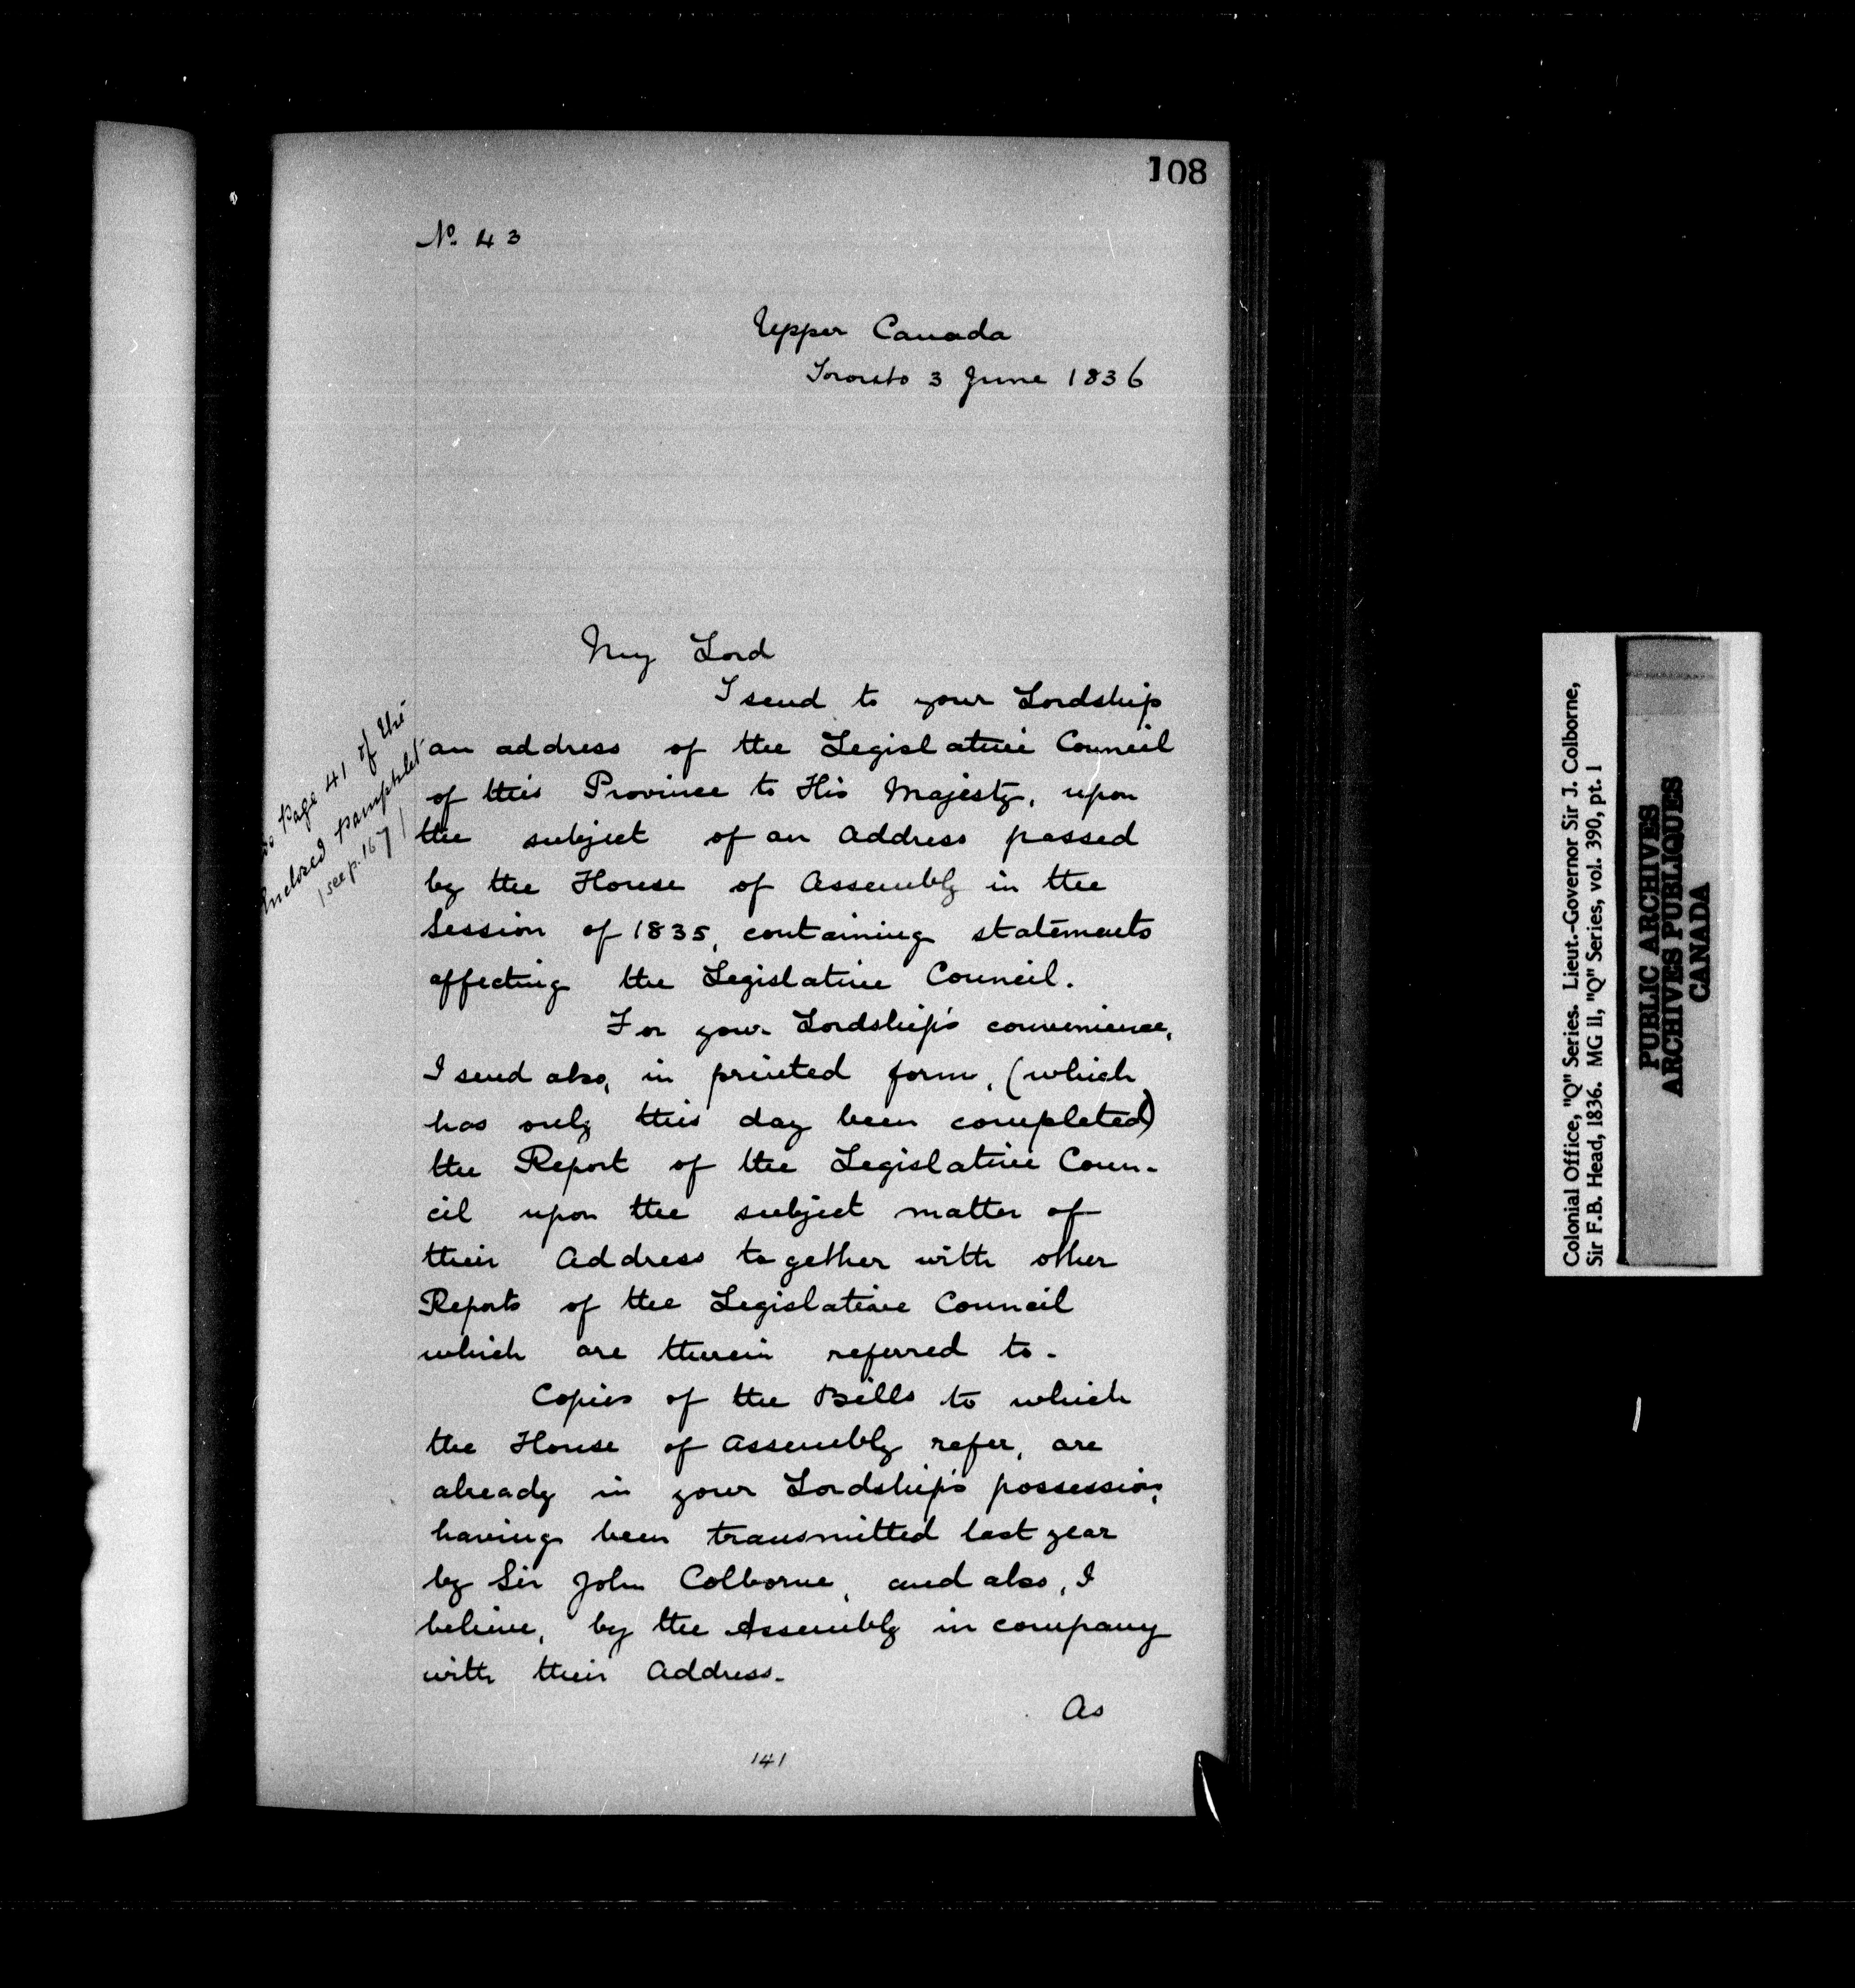 108
No. 43
Upper Canada
Toronto 3 June 1836
My Lord
I send to your Lordship
an address of the Legislative Council
of this Province to His Majesty, upon
the subject of an Address passed
by the House of Assembly in the
Session of 1835, containing statements
affecting the Legislative Council.
Page 41 of the
Enclosed Pamphlet
/ see p. 167 /
For your Lordship's convenience,
I send also, in printed form, (which
has only this day been completed)
the Report of the Legislative Coun-
cil upon the subject matter of
their Address together with other
Reports of the Legislative Council
which are therein referred to.
Copies of the Bills to which
the House of Assembly refer, are
already in your Lordship's possession,
having been transmitted last year
by Sir John Colborne, and also, I
believe, by the Assembly in company
with their Address.
As
141
Colonial Office, "Q" Series. Lieut.-Governor Sir J. Colborne,
Sir F.B. Head, 1836. MG 11, "Q" Series, vol. 390, pt. 1
PUBLIC ARCHIVES
ARCHIVES PUBLIQUES
CANADA